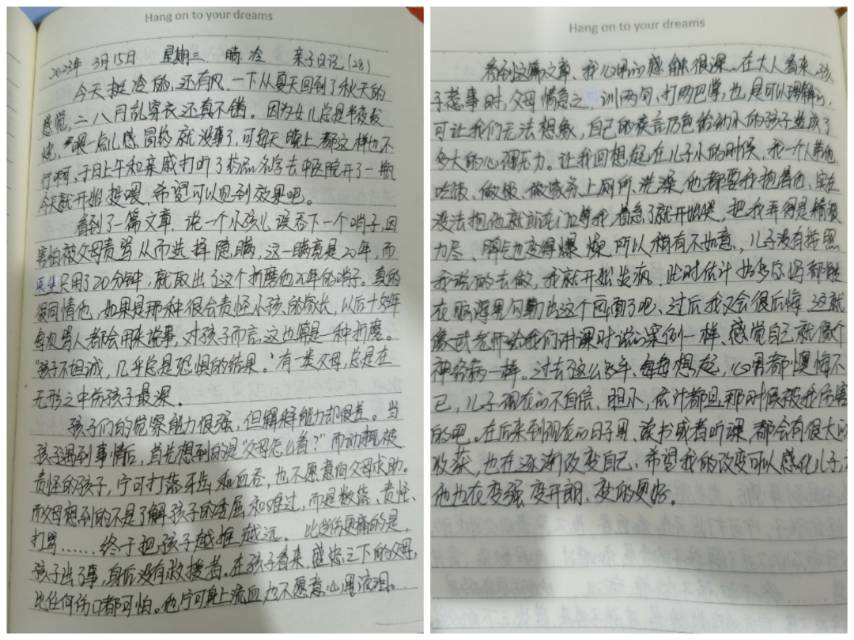 Hang on to your dreams
2023年 3月15日 星期三 晴冷 亲子日记(28)
今天挺冷的,还有风,一下从夏天回到了秋天的
感觉,二八月乱穿衣还真不错。因为女儿总是半夜咳
嗽,一点儿感,就没事了,可每天晚上都这样也不
行啊,于是上午和亲戚打听了药品名字去中医院开了一瓶
今天就开始投喂,希望可以见到效果吧。
看到了一篇文章,说一个小孩儿误吞下一个哨子,因
害怕被父母责骂从而选择隐瞒,这一瞒竟是20年,而
医生只用了20分钟,就取出了这个折磨他20年的哨子。真的
很同情他,如果是那种很会责怪小孩的家长,以后十多年
每次骂人都会用来提事,对孩子而言这也算是一种折磨。
"孩子不坦诚,几乎总是恐惧的结果。"有一类父母,总是在
无形之中伤孩子最深。
孩子们的觉察能力很强,但解释能力却很差。当
孩子遇到事情后,首先想到的是"父母怎么看?"而动辄被
责怪的孩子,宁可打落牙齿和血吞,也不愿意向父母求助。
而父母想到的不是了解孩子的委屈和难过,而是数落、责怪、
打骂……终于把孩子越推越远。比受伤更痛的是,
孩子出了事,身后没有救援者。在孩子看来,盛怒之下的父母,
比任何伤口都可怕。他宁可身上流血,也不愿意心里流泪。
Hang on to your dreams
看到这篇文章,我心里的感触很深。在大人看来,孩
子惹事时,父母情急之,训两句,打两巴掌,也是可以理解的,
可让我们无法想象,自己的疾言厉色给幼小的孩子造成了
多大的心理压力。让我回想起在儿子小的时候,我一个人带他
吃饭、做饭、做家务上厕所、洗澡他都要我抱着他,实在
没法抱他就站门边等我,着急了就开始哭,把我弄得是精疲
力尽,脾气也变得暴燥,所以稍有不如意,儿子没有按照
我说的去做,我就开始发疯,此时估计
在脑海里勾勒出这个画面了吧,过后我又会很后悔,这就
像武老师给我们讲课时说的案例一样,感觉自己就像个
神经病一样。过去了这么多年,每每想起,心里都懊悔不
已,儿子现在的不自信、胆小,估计都是那时候被我伤害
的吧。在后来到现在的日子里,读书或者听课,都会有很大的
收获,也在逐渐改变自己,希望我的改变可以感化儿子,
他也在变强,变开朗,变的更好。